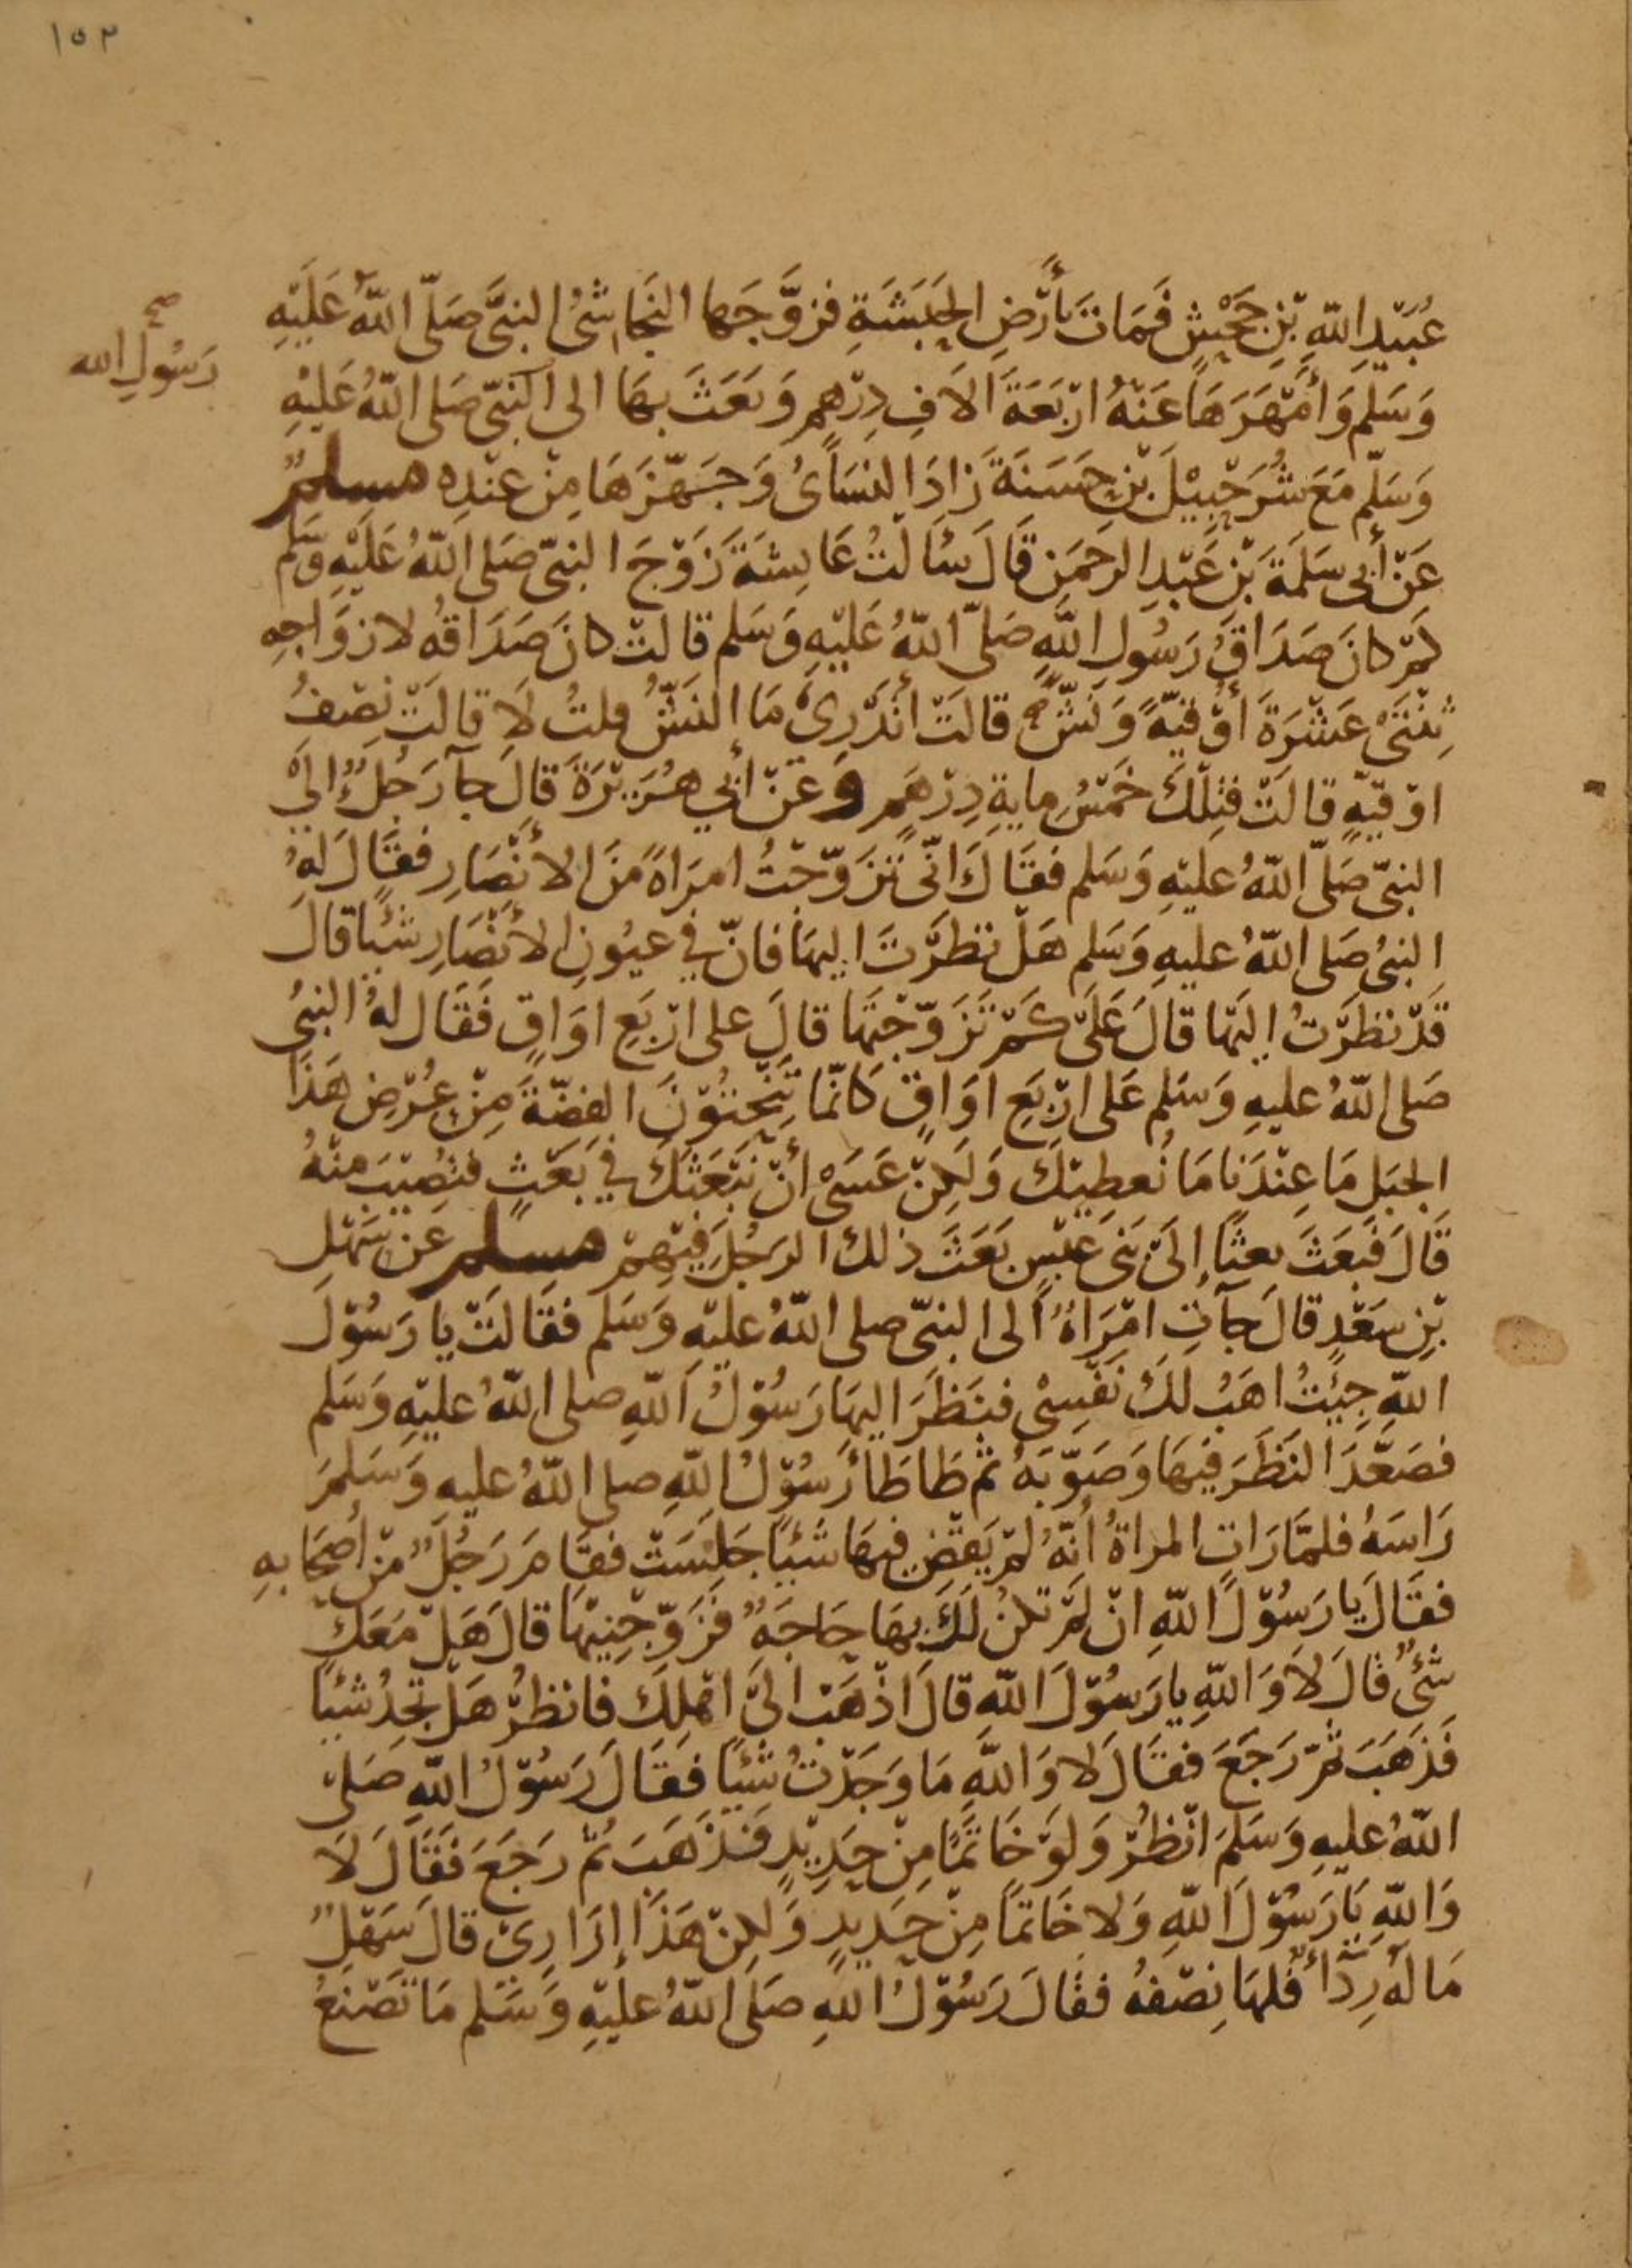 ١٥٣
عُبَيْدِ اللّهِ بْنِ جَحْشٍ فَمَاتَ بأَرْضِ الحَبَشَةِ فزوَّجَها النَجاشىُّ النبىَّ صَلّى اللّهُ عَلَيْهِ
صح
رَسُولِ الله
وَسَلم وَأَمْهَرَهَا عَنْهُ ارْبَعَةَ الَافِ دِرْهمٍ وَبَعَثَ بهَا الى النبىّ صَلى اللّهُ عَلَيْهِ
وَسَلّم مَعَ شُرَحْبِيْلَ بْنِ حَسَنَةَ زادَ النسَائىُ وَجَهّزَهَا مِنْ عِنْدِه مسلمٌ
عَنْ أبى سَلَمَةَ بْنِ عَبْدِ الرحَمَنِ قَالَ سَأَلتُ عَايشَةَ زَوْجَ النبىّ صَلى اللّهُ عَلَيْهِ وَسَلم
كَمْ كانَ صَدَاقُ رَسُولِ اللّهِ صَلّى اللّهُ عَلَيْهِ وَسَلم قالتْ كانَ صَدَاقُه لازوَاجِهِ
ثِنْتَىْ عَشْرَةَ أُوْقيّةً وَنَشٌّ قالَتْ اتَدْرِىْ مَا النَشُّ قلتُ لَا قالَتْ نِصْفُ
اوْقيّةٍ قالَتْ فتِلْكَ خَمْسُ مِايةِ دِرْهَمٍ وعَنْ أبي هُرَيْرَةَ قالَ جآ رَجُلٌ إلى
النبىّ صَلّى اللّهُ عَليْهِ وَسَلم فقَالَ انّى تزَوّجْتُ امرَاةً مِنَ الأنْصَارِ فقَالَ لهُ
النبىُ صَلى اللّهُ عليهِ وَسَلم هَلْ نظرْتَ اليهَا فانّ في عيُونِ الأنْصَارِ شَيْئًا قالَ
قَدْ نظَرْتُ اليْهَا قالَ عَلَى كَمْ تَزَوّجْتَهَا قالَ على ارْبَعِ اوَاقٍ فَقَال لهُ النبىُ
صَلى اللّهُ عليهِ وَسَلم عَلى ارْبَعِ اوَاقٍ كَانّمَا تَنْحِتُوْنَ الفِضّةَ مِنْ عُرْضِ هَذَا
الجَبَلِ مَا عِنْدَنا مَا نُعطِيْكَ وَلَكِنْ عَسَىْ أنْ نَبْعَثَكَ في بَعْثٍ فتُصِيْبَ مِنْهُ
قَالَ فَبَعَثَ بعثًا إلَى بَنى عَبْسٍ بَعَثَ ذلكَ الرجُلَ فيْهِمْ مسلم عَن سَهْلِ
بْنِ سَعْدٍ قالَ جآتِ امْرَاةٌ الى النبىّ صلى اللّهُ عليْهِ وَسَلم فقَالَتْ يا رَسُوْلَ
اللّهِ جِيْتُ اهَبُ لكَ نَفْسِىْ فنَظَرَ اليهَا رَسُوْلُ اللّهِ صلى اللّهُ عليْهِ وَسَلم
فصَعَّدَ النَظَرَ فيهَا وَصَوّبَهُ ثم طَاطَأَ رَسُوْلُ اللّهِ صلى اللّهُ عليه وَسَلمَ
رَاسَهُ فلمّا رَاتِ المراةُ أنّهُ لمْ يَقْضِ فيهَا شَيْئًا جَلَسَتْ فقَامَ رَجُلٌ مّنْ أصْحَابهِ
فقَالَ يا رَسُوْلَ اللّهِ انْ لمْ تكنْ لَكَ بهَا حَاجَةٌ فَزَوّجْنِيْهَا قالَ هَلْ مَعَكَ
شَىْءٌ قَالَ لَا وَاللّهِ يا رَسُوْلَ اللّهِ قالَ اذْهَبْ الىَ اهْلِكَ فانْظرْ هَلْ تجِدُ شَيْئًا
فَذهَبَ ثمّ رَجَعَ فقَالَ لا وَاللّهِ مَا وَجَدْتُ شَيْئًا فقَالَ رَسُوْلُ اللّهِ صَلى
اللّهُ عليهِ وَسَلمَ انْظُرْ وَلوَ خَاتمًا مِنْ حَدِيْدٍ فذهَبَ ثمّ رَجَعَ فَقَالَ لَا
وَاللّهِ يَا رَسُوْلَ اللّهِ وَلا خَاتمًا مِنْ حَدِيدٍ وَلكِنْ هَذَا إزَارِىْ قالَ سَهْلٌ
مَا لهُ رِدَاءٌ فلَهَا نِصْفهُ فقَالَ رَسُوْلُ اللّهِ صَلى اللّهُ عليْهِ وَسَلم مَا تَصْنَعُ